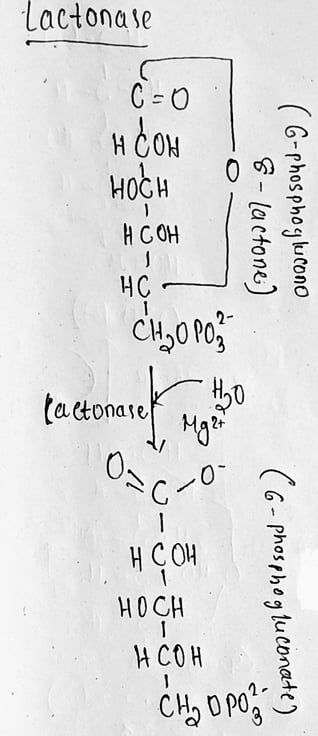 Lactonase
C=O
HCOH
HOCH
HCOH
HC
CH2OPO3 2-
O
(6-phosphoglucono
δ-lactone)
Lactonase
H2O
Mg2+
O
C
O-
HCOH
HOCH
HCOH
CH2OPO3 2-
(6-phosphogluconate)